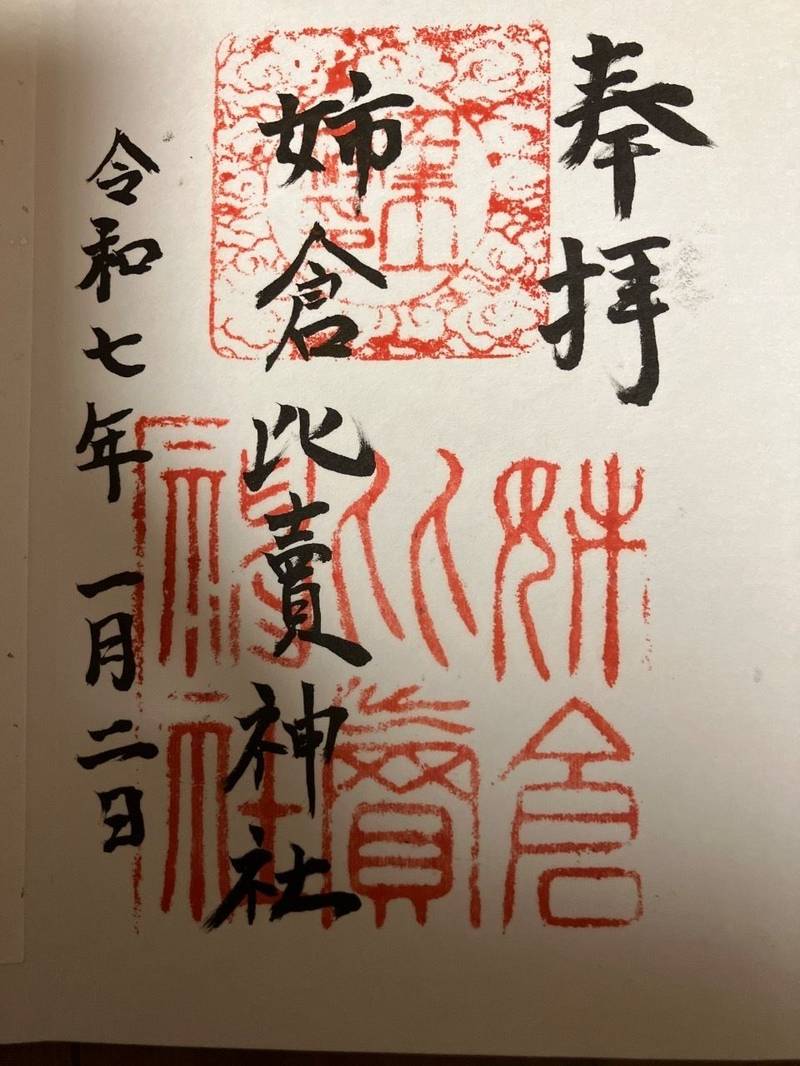 奉拝
姉倉比賣神社
令和七年一月二日
姉倉
比賣
神社